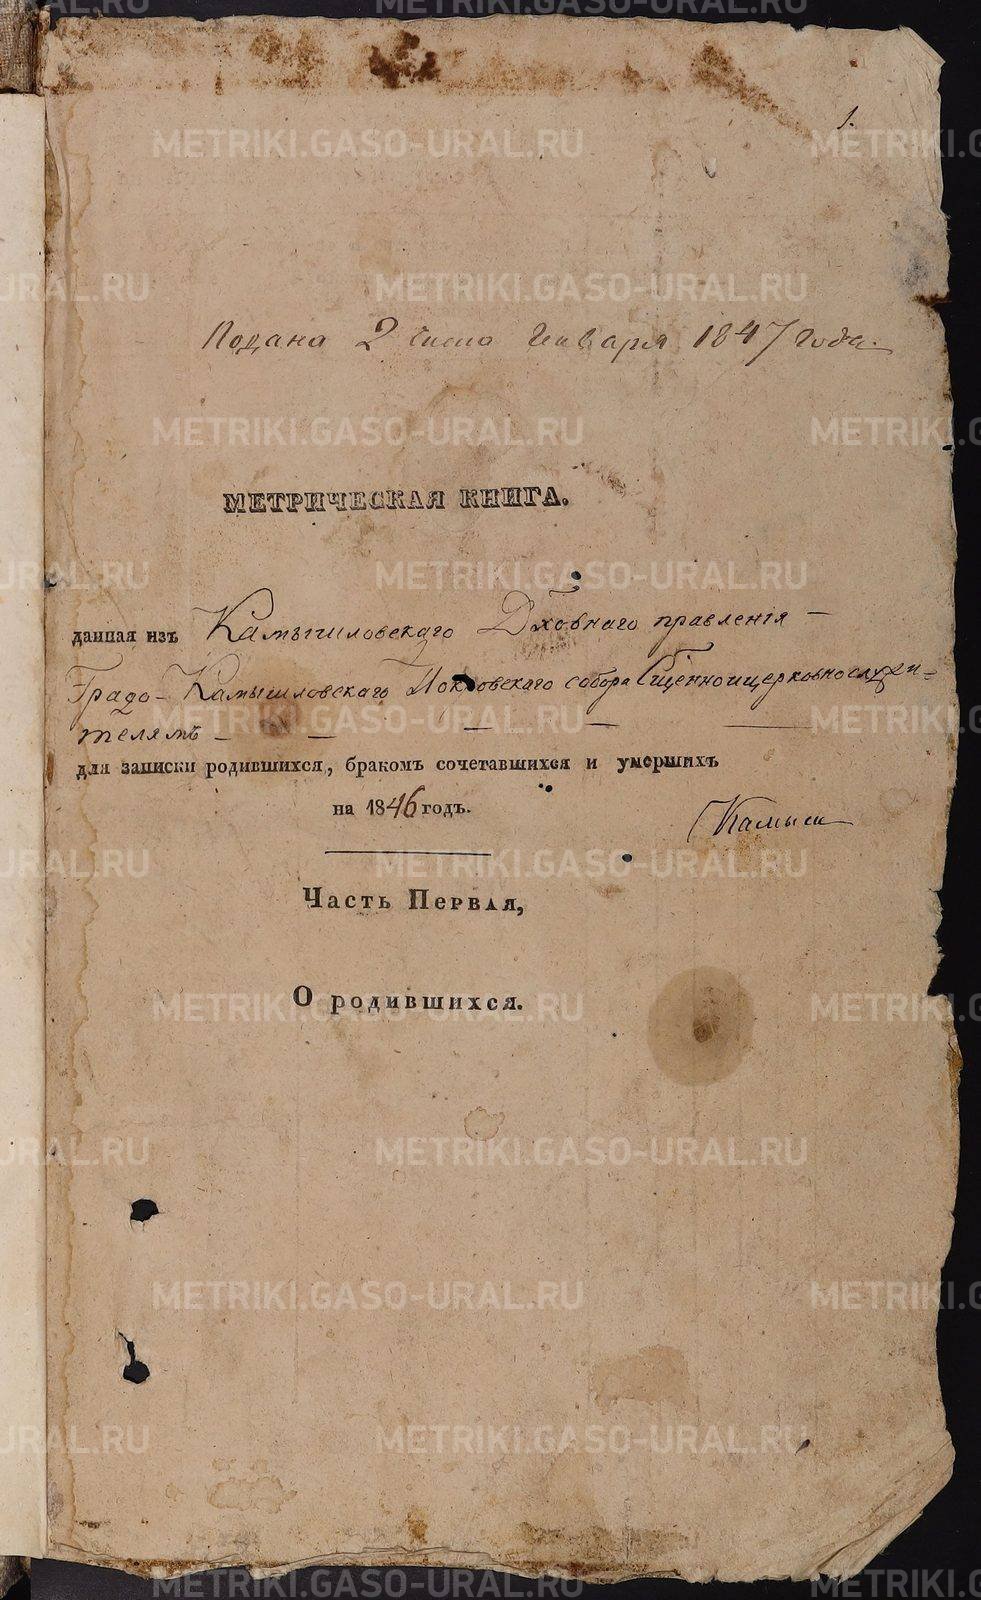 1.
Подана 2 числа Генваря 1847 года.
МЕТРИЧЕСКАЯ КНИГА.
данная изъ Камышловскаго Дховнаго правленія —
Градо-Камышловскаго Покровскаго собора Сщенноицерковнослужи=
телямъ — — — — —
для записки родившихся, бракомъ сочетавшихся и умершихъ
на 1846 годъ.
Камыш
Часть Первая,
О родившихся.
METRIKI.GASO-URAL.RU